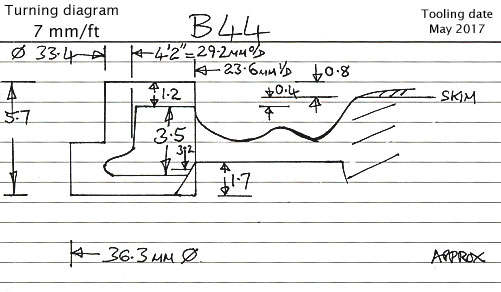 Turning diagram
7 mm/ft
B44
Tooling date
May 2017
Ø 33.4
4'2"=29.2mm O/D
23.6mm I/D
0.8
0.4
1.2
SKIM
5.7
3.5
3.2
1.7
36.3 MM Ø
APPROX